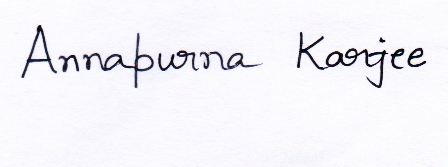 Annapurna Karjee